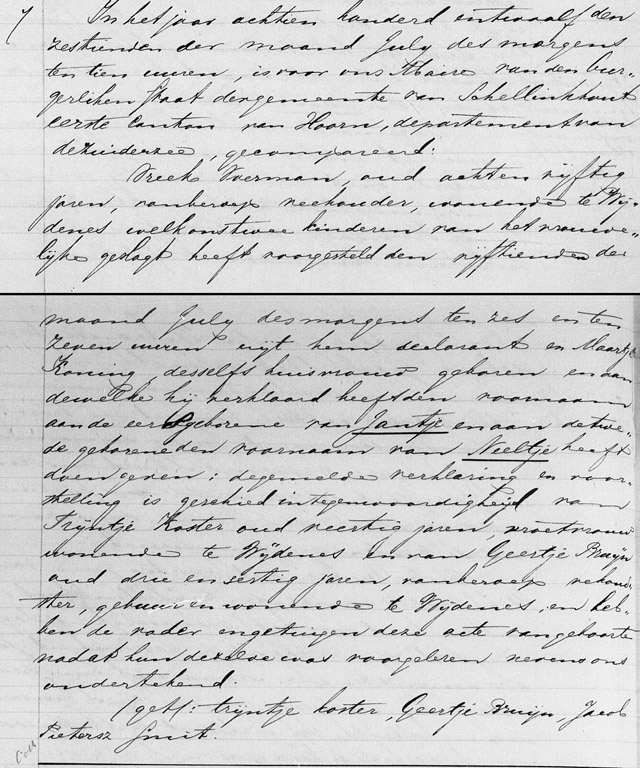 7 In het jaar achtien honderd en twaalf den
zestienden der maand July des morgens
ten tien uuren, is voor ons Maire van den bur-
gerlijken staat der gemeente van Schellinkhout
eerste Canton van Hoorn, departement van
de Zuiderzee, gecompareerd:
Dreek Overman, oud acht en vijftig
jaren, van beroep veehouder, wonende te Wij-
denes welk ons twee kinderen van het vrouwe-
lijke geslagt heeft voorgesteld den vijftienden der
maand July des morgens ten zes en ten
zeven uuren uijt hem declarant en Maartje
Koning, desselfs huisvrouw geboren en aan
dewelke hij verklaard heeft den voornaam
aan de eerstgeborene van Jantje en aan de twe-
de geborene den voornaam van Neeltje heeft
doen geven; de gemelde verklaring en voor-
stelling is geschied in tegenwoordigheijd van
Trijntje Koster oud veertig jaren, vroetvrouw
wonende te Wijdenes en van Geertje Bruijn
oud drie en sestig jaren, van beroep vehoud-
ster, gebuuren wonende te Wijdenes, en heb-
ben de vader en getuigen deze acte van geboorte
nadat hun dezelve was voorgelezen nevens ons
ondertekend.
(get): trijntje koster, Geertje Bruijn, Jacob
Pietersz Smit.